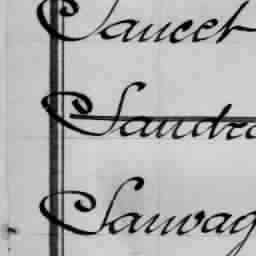 Saucet
Sandra
Sauvag